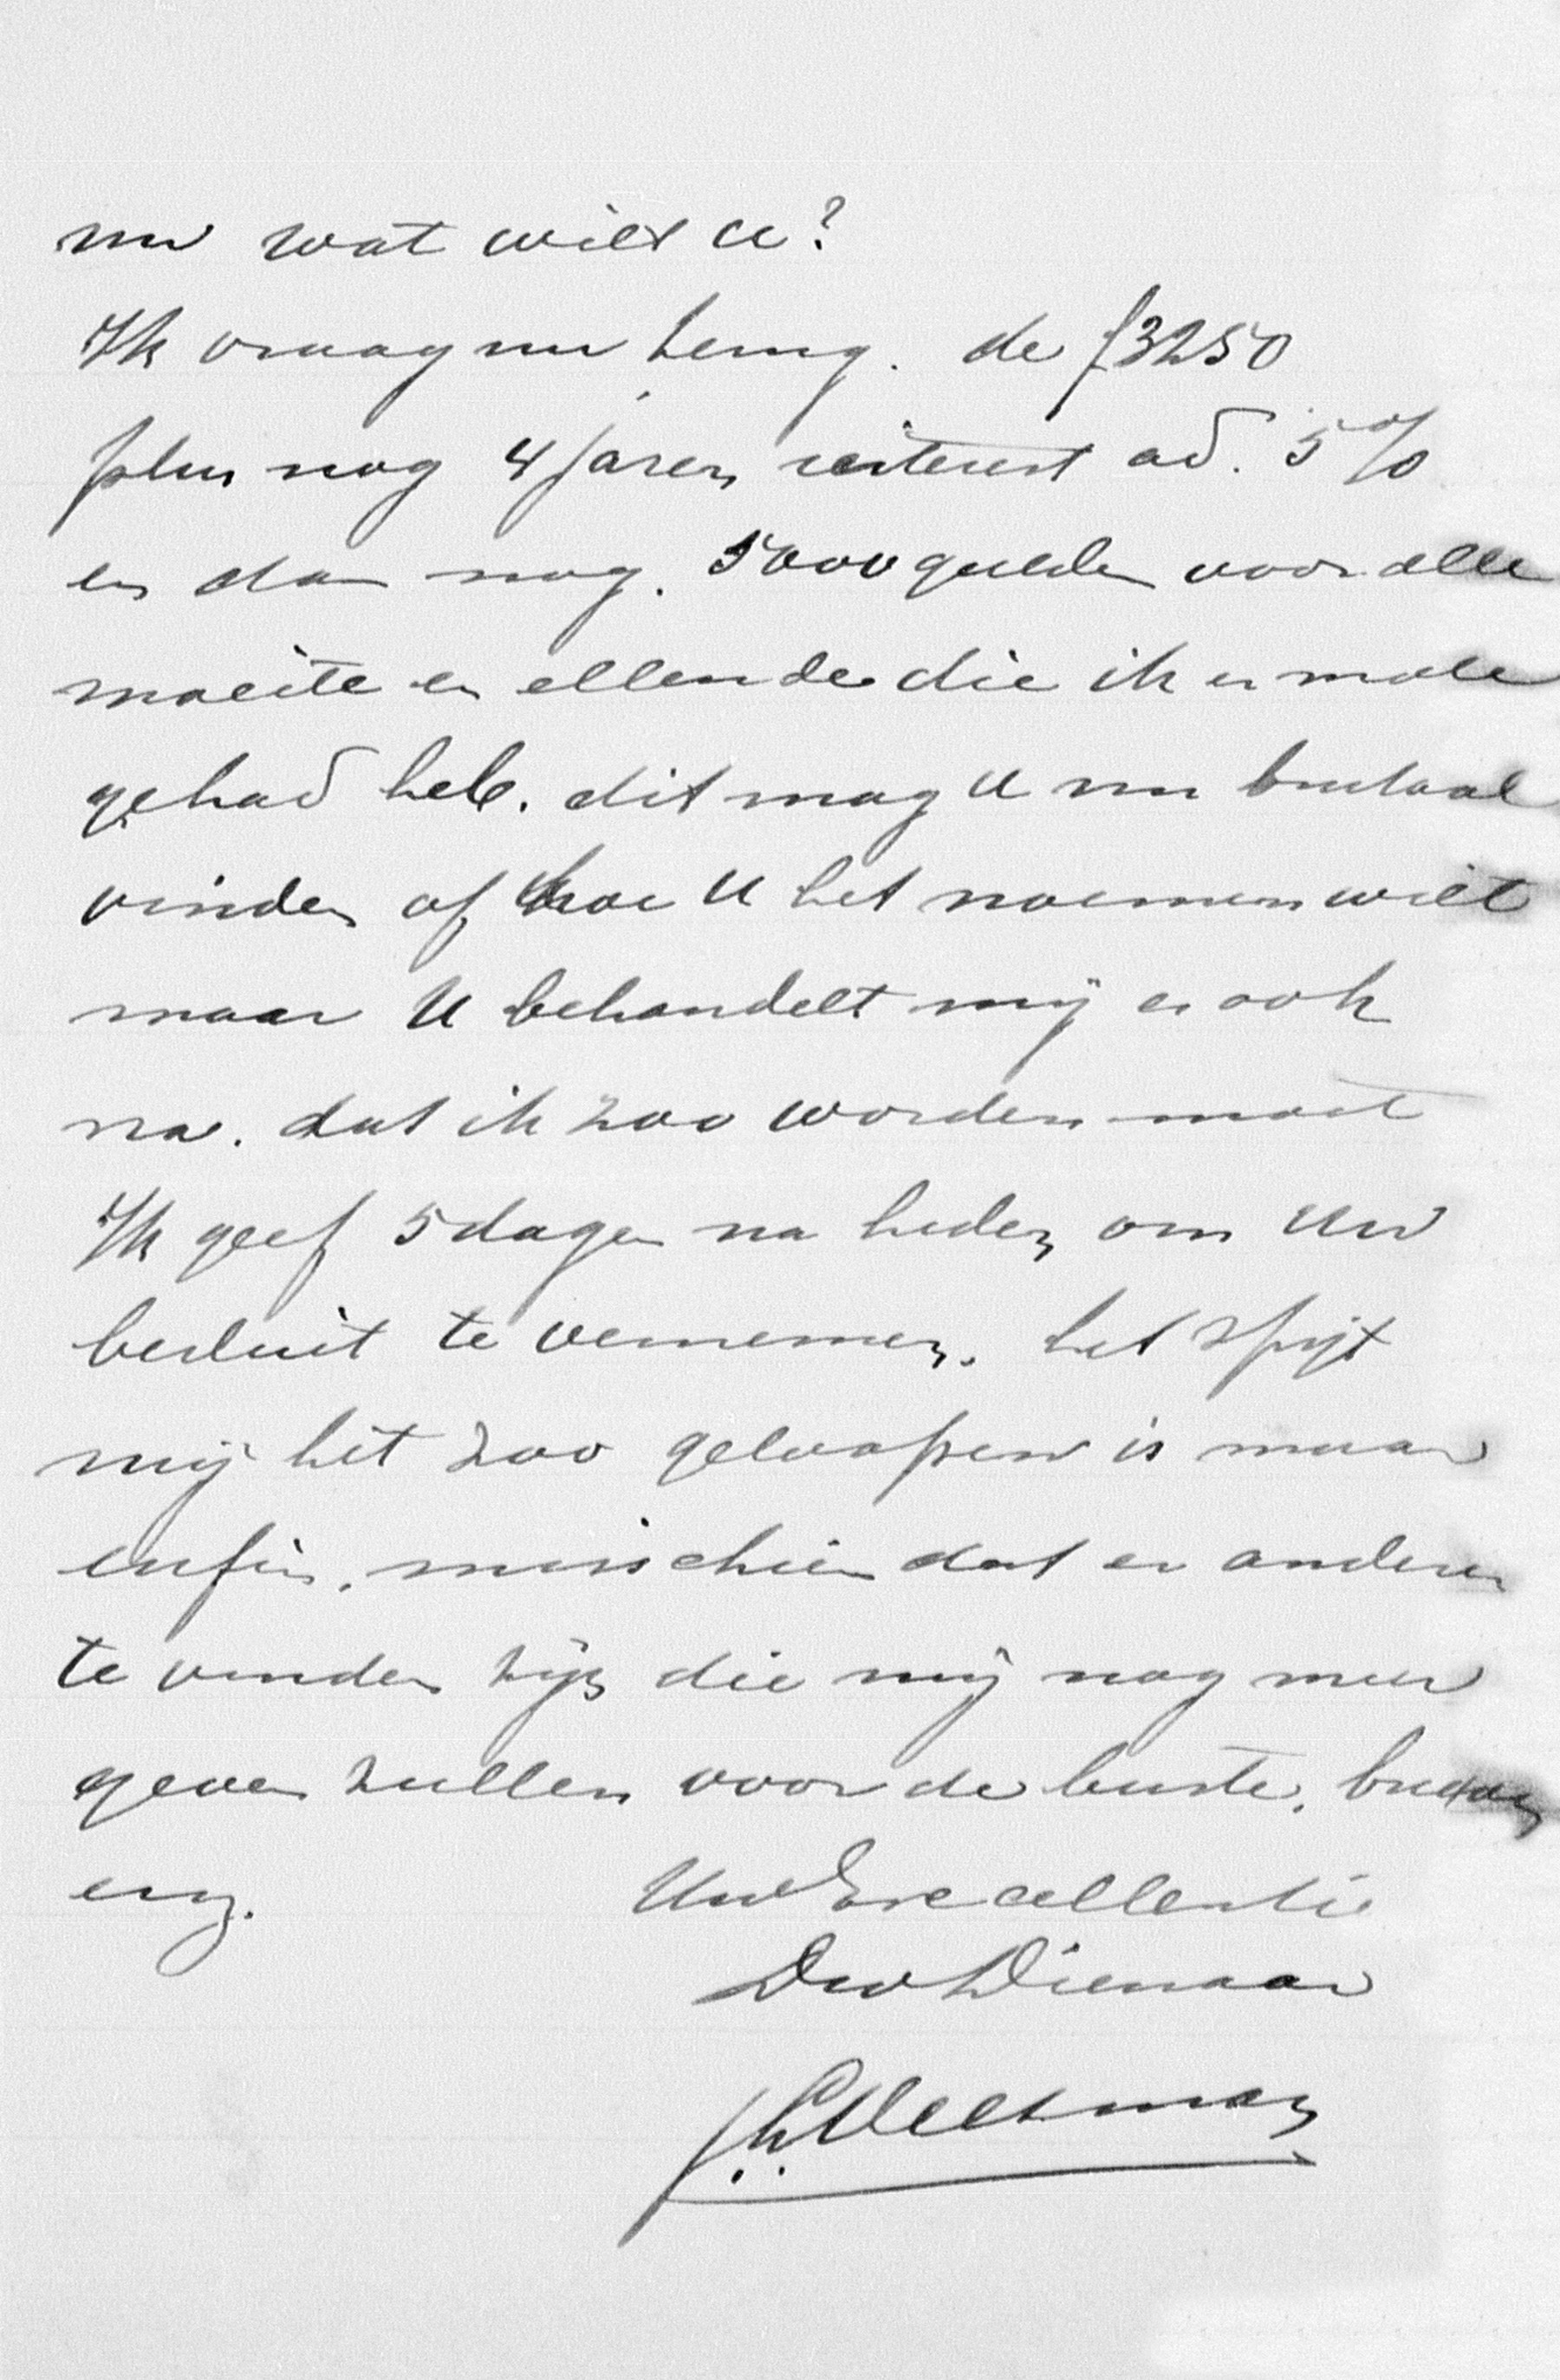 nu wat wilt u?
Ik vraag nu terug. de f3250
plus nog 4 jaren interest ad. 5%
en dan nog. 5000 gulden voor alle
moeite en ellende die ik er mede
gehad heb. dit mag U nu brutaal
vinden of hoe U het noemen wilt
maar U behandelt mij er ook
na. dat ik zoo worden moet
Ik geef 5 dagen na heden om Uw
besluit te vernemen. het spijt
mij het zoo geloopen is maar
enfin. misschien dat er anderen
te vinden zijn die mij nog meer
geven zullen voor de buste.
enz. Uw Excellentie
Dw Dienaar
Veltman